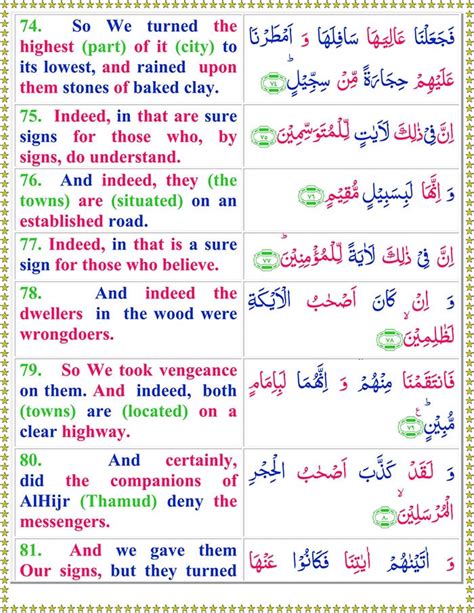 74. So We turned the
highest (part) of it (city) to
its lowest, and rained upon
them stones of baked clay.
فَجَعَلْنَا عَالِيَهَا سَافِلَهَا وَ اَمْطَرْنَا
عَلَيْهِمْ حِجَارَةً مِّنْ سِجِّيْلٍؕ ﴿۷۴﴾
75. Indeed, in that are sure
signs for those who, by
signs, do understand.
اِنَّ فِىْ ذٰلِكَ لَاٰيٰتٍ لِّلْمُتَوَسِّمِيْنَ ﴿۷۵﴾
76. And indeed, they (the
towns) are (situated) on an
established road.
وَ اِنَّهَا لَبِسَبِيْلٍ مُّقِيْمٍ ﴿۷۶﴾
77. Indeed, in that is a sure
sign for those who believe.
اِنَّ فِىْ ذٰلِكَ لَاٰيَةً لِّلْمُؤْمِنِيْنَؕ ﴿۷۷﴾
78. And indeed the
dwellers in the wood were
wrongdoers.
وَ اِنْ كَانَ اَصْحٰبُ الْاَيْكَةِ
لَظٰلِمِيْنَۙ ﴿۷۸﴾
79. So We took vengeance
on them. And indeed, both
(towns) are (located) on a
clear highway.
فَانتَقَمْنَا مِنْهُمْ وَ اِنَّهُمَا لَبِاِمَامٍ
مُّبِيْنٍؕ ﴿۷۹﴾ ع
80. And certainly,
did the companions of
AlHijr (Thamud) deny the
messengers.
وَ لَقَدْ كَذَّبَ اَصْحٰبُ الْحِجْرِ
الْمُرْسَلِيْنَۙ ﴿۸۰﴾
81. And we gave them
Our signs, but they turned
وَ اٰتَيْنٰهُمْ اٰيٰتِنَا فَكَانُوْا عَنْهَا